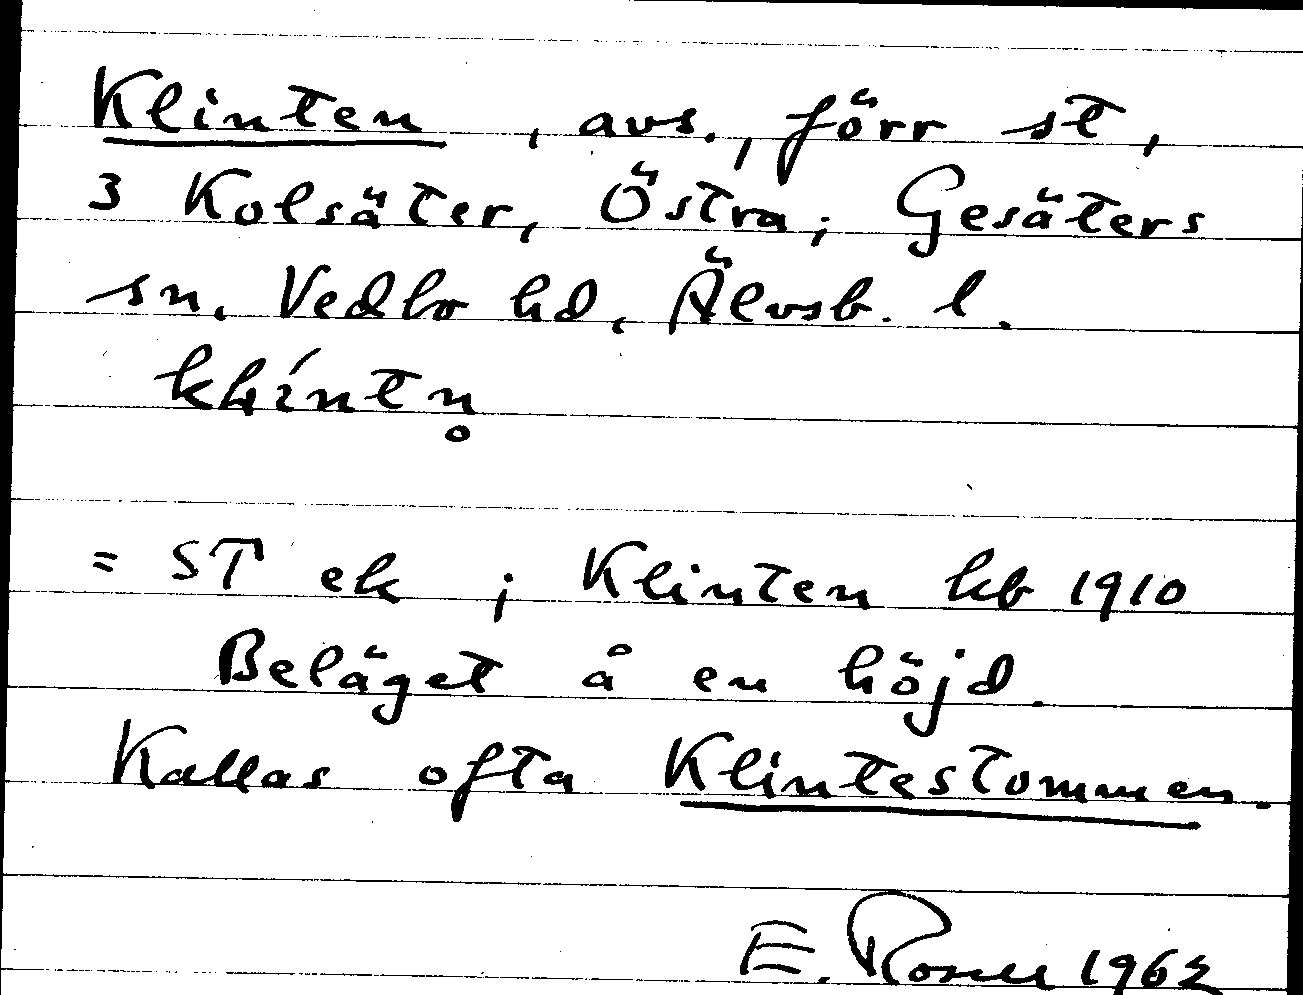 Klinten, avs., förr st,
3 Kolsäter, Östra; Gesäters
sn. Vedbo hd, Älvsb. l.
klíntn̥
= ST ek; Klinten kb 1910
Beläget å en höjd.
Kallas ofta Klintestommen.
E. Rosell 1962